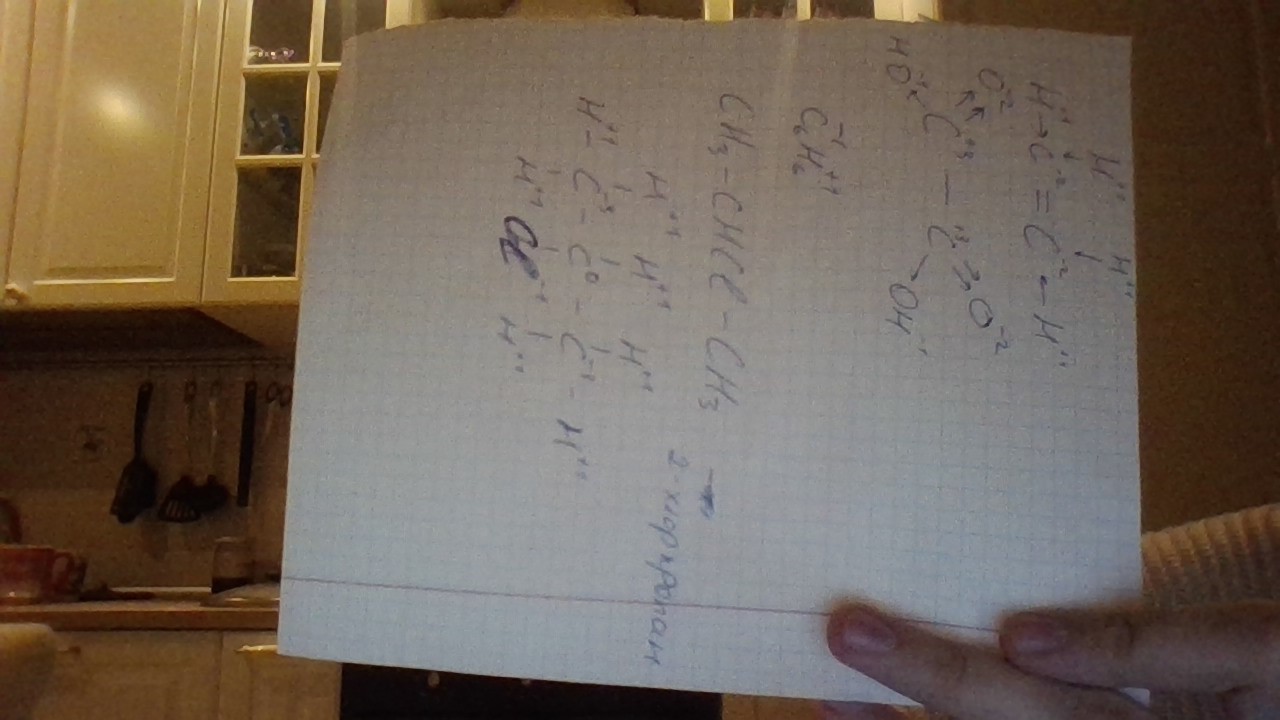 H⁺¹ H⁺¹
H⁺¹→C⁻²=C⁻²←H⁺¹
O⁻² O⁻²
C⁺³—C⁺³
HO⁻¹ OH⁻¹
C₆⁻¹H₆⁺¹
CH₃-CHCl-CH₃
2-хлорпропан
H⁺¹ H⁺¹ H⁺¹
H⁺¹-C⁻³-C⁰-C-H⁺¹
H⁺¹ Cl⁻¹ H⁺¹